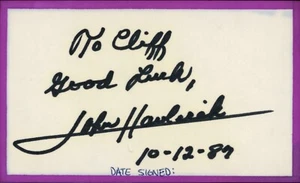 To Cliff
Good Luck,
John Havlicek
10-12-87
DATE SIGNED: